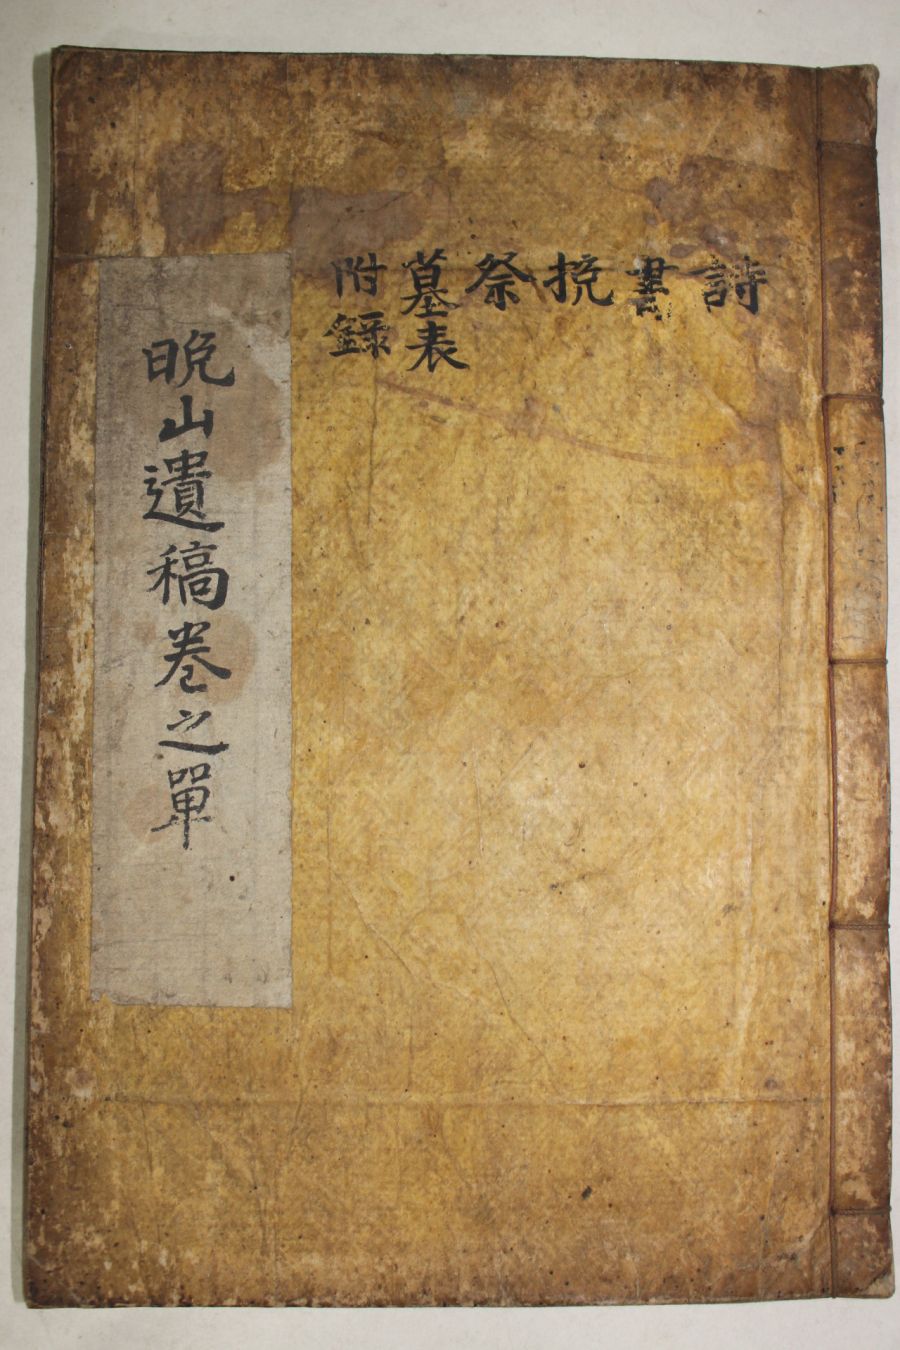 詩
書
挽
祭
墓表
附錄
晩山遺稿卷之單